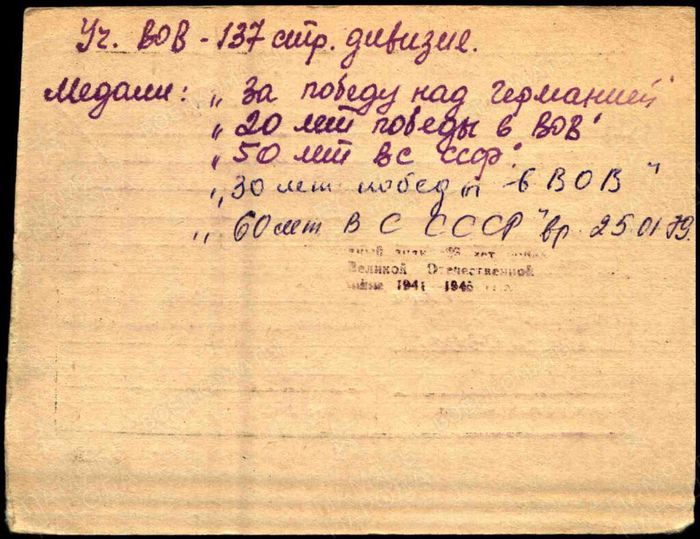 Уч. ВОВ - 137 стр. дивизие.
Медали: „За победу над Германией"
„20 лет победы в ВОВ"
„50 лет ВС СССР".
„30 лет победы в ВОВ"
„60 лет ВС СССР" вр. 25.01.79.
лет
Великой Отечественной
1941 1945